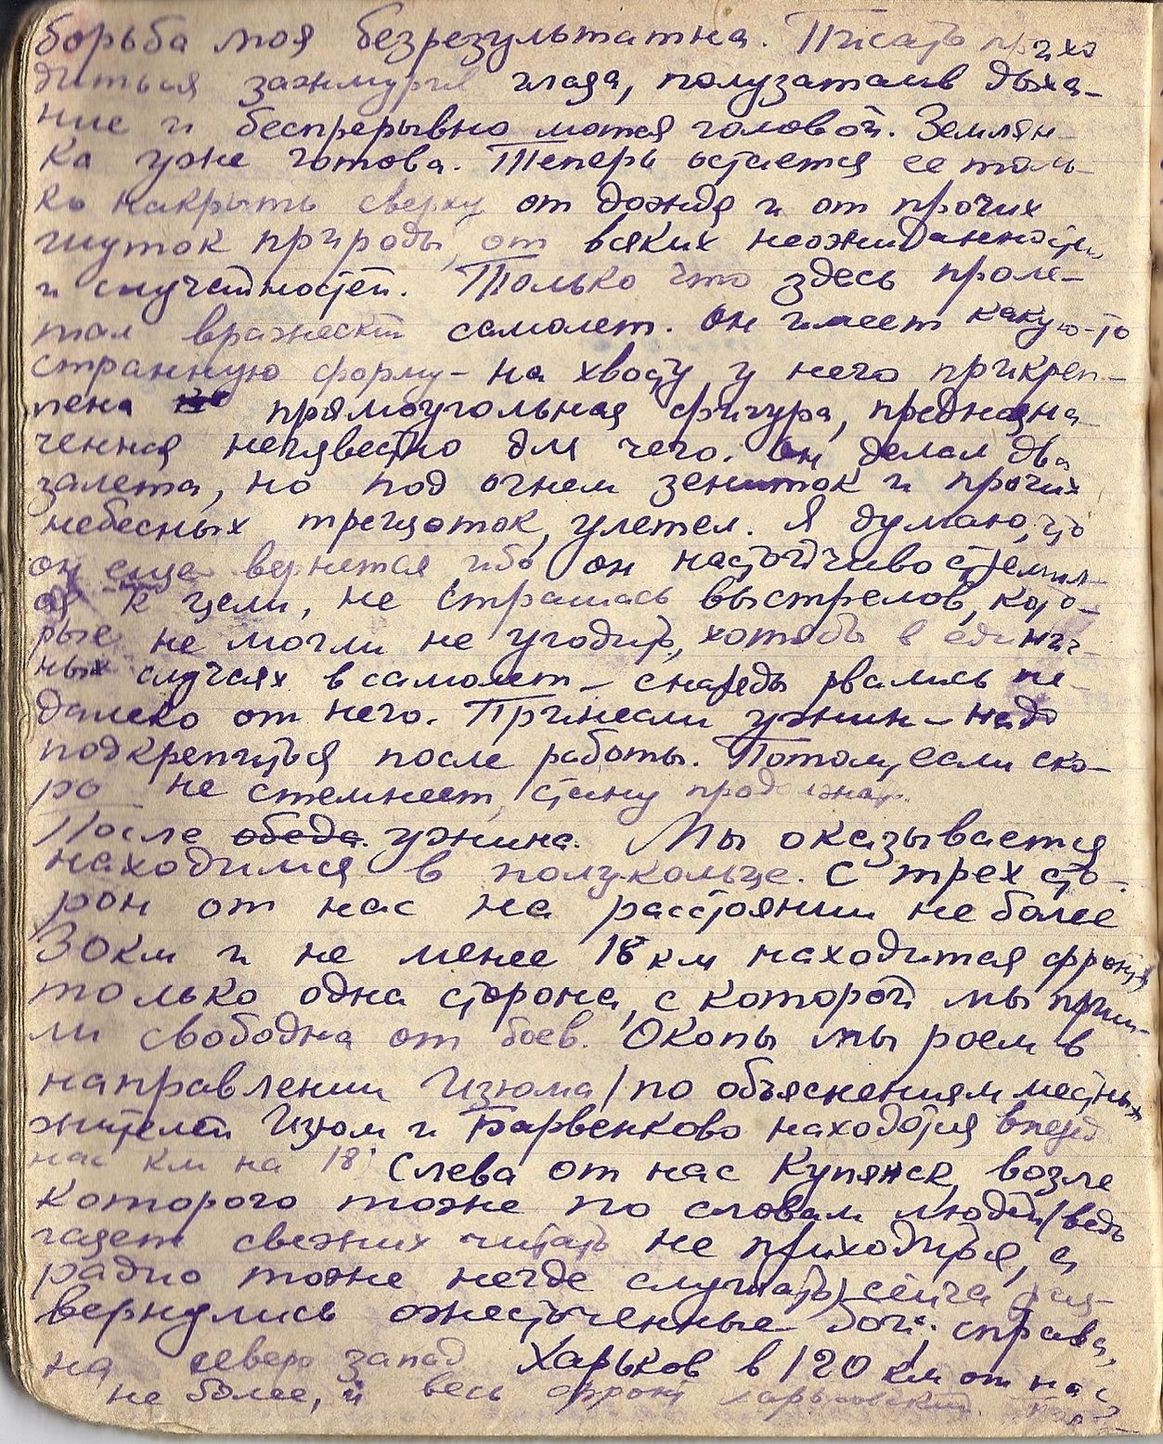 борьба моя безрезультатна. Писать прихо
диться зажмурив глаза, полузатаив дыха-
ние и беспрерывно мотая головой. Землян-
ка уже готова. Теперь остается ее толь-
ко накрыть сверху от дождя и от прочих
шуток природы, от всяких неожиданностей
и случайностей. Только что здесь проле-
тал вражеский самолет. Он имеет какую-то
странную форму - на хвосту у него прикреп-
лена прямоугольная фигура, предназна-
ченная неизвестно для чего. Он делал два
залета, но под огнем зениток и прочих
небесных трещоток, улетел. Я думаю, что
он еще вернется ибо он настойчиво стремил-
ся к цели, не страшась выстрелов, кото-
рые не могли не угодить, хотябы в единич-
ных случаях в самолет - снаряды рвались не-
далеко от него. Принесли ужин - надо
подкрепиться после работы. Потом, если ско-
ро не стемнеет, стану продолжать.
После обеда ужина. Мы оказывается
находимся в полукольце. С трех сто-
рон от нас на расстоянии не более
30 км и не менее 18 км находится фронт,
только одна сторона, с которой мы приш-
ли свободна от боев. Окопы мы роем в
направлении Изюма / по объяснениям местных
жителей Изюм и Барвенково находятся вперед
нас км на 18 Слева от нас Купянск, возле
которого тоже по словам людей / ведь
газет свежих читать не приходиться, а
радио тоже негде слушать / сейчас раз-
вернулись ожесточенные бои; справа,
на северо запад Харьков в 120 км от нас
не более, и весь фронт харьковский.